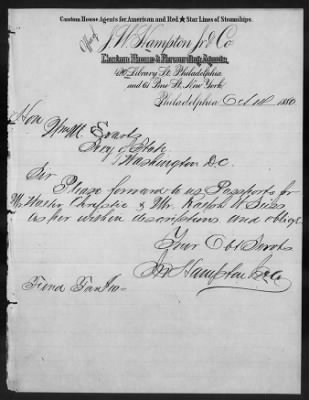 Custom House Agents for American and Red ★ Star Lines of Steamships.
Office of J. W. Hampton Jr. & Co
Custom House & Forwarding Agents,
420 Library St. Philadelphia
and 61 Pine St. New York
Philadelphia Oct 1880
Hon Wm M. Evarts
Secy of State
Washington D.C.
Sir Please forward to us Passports for
Mr. Walter & Mr. Ralph
as per within descriptions and oblige
Your Obt Servts
J W Hampton Jr & Co